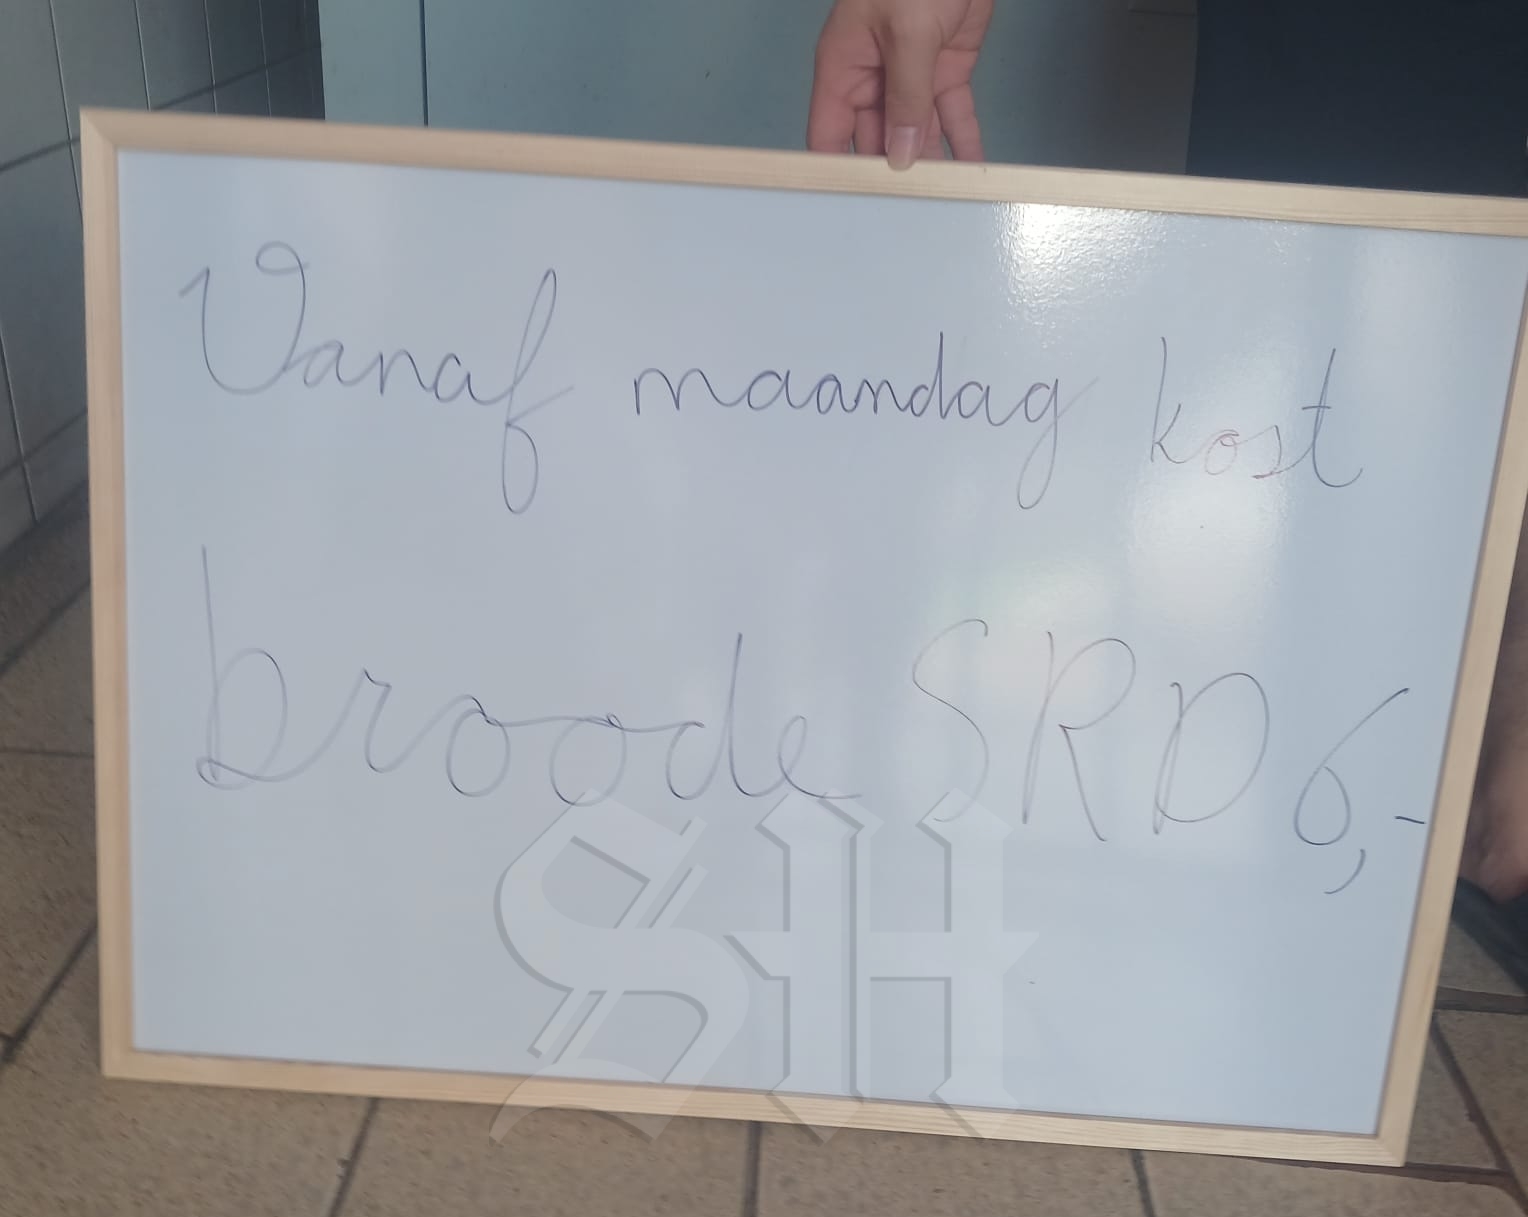 Vanaf maandag kost
broode SRD 6,-
SH